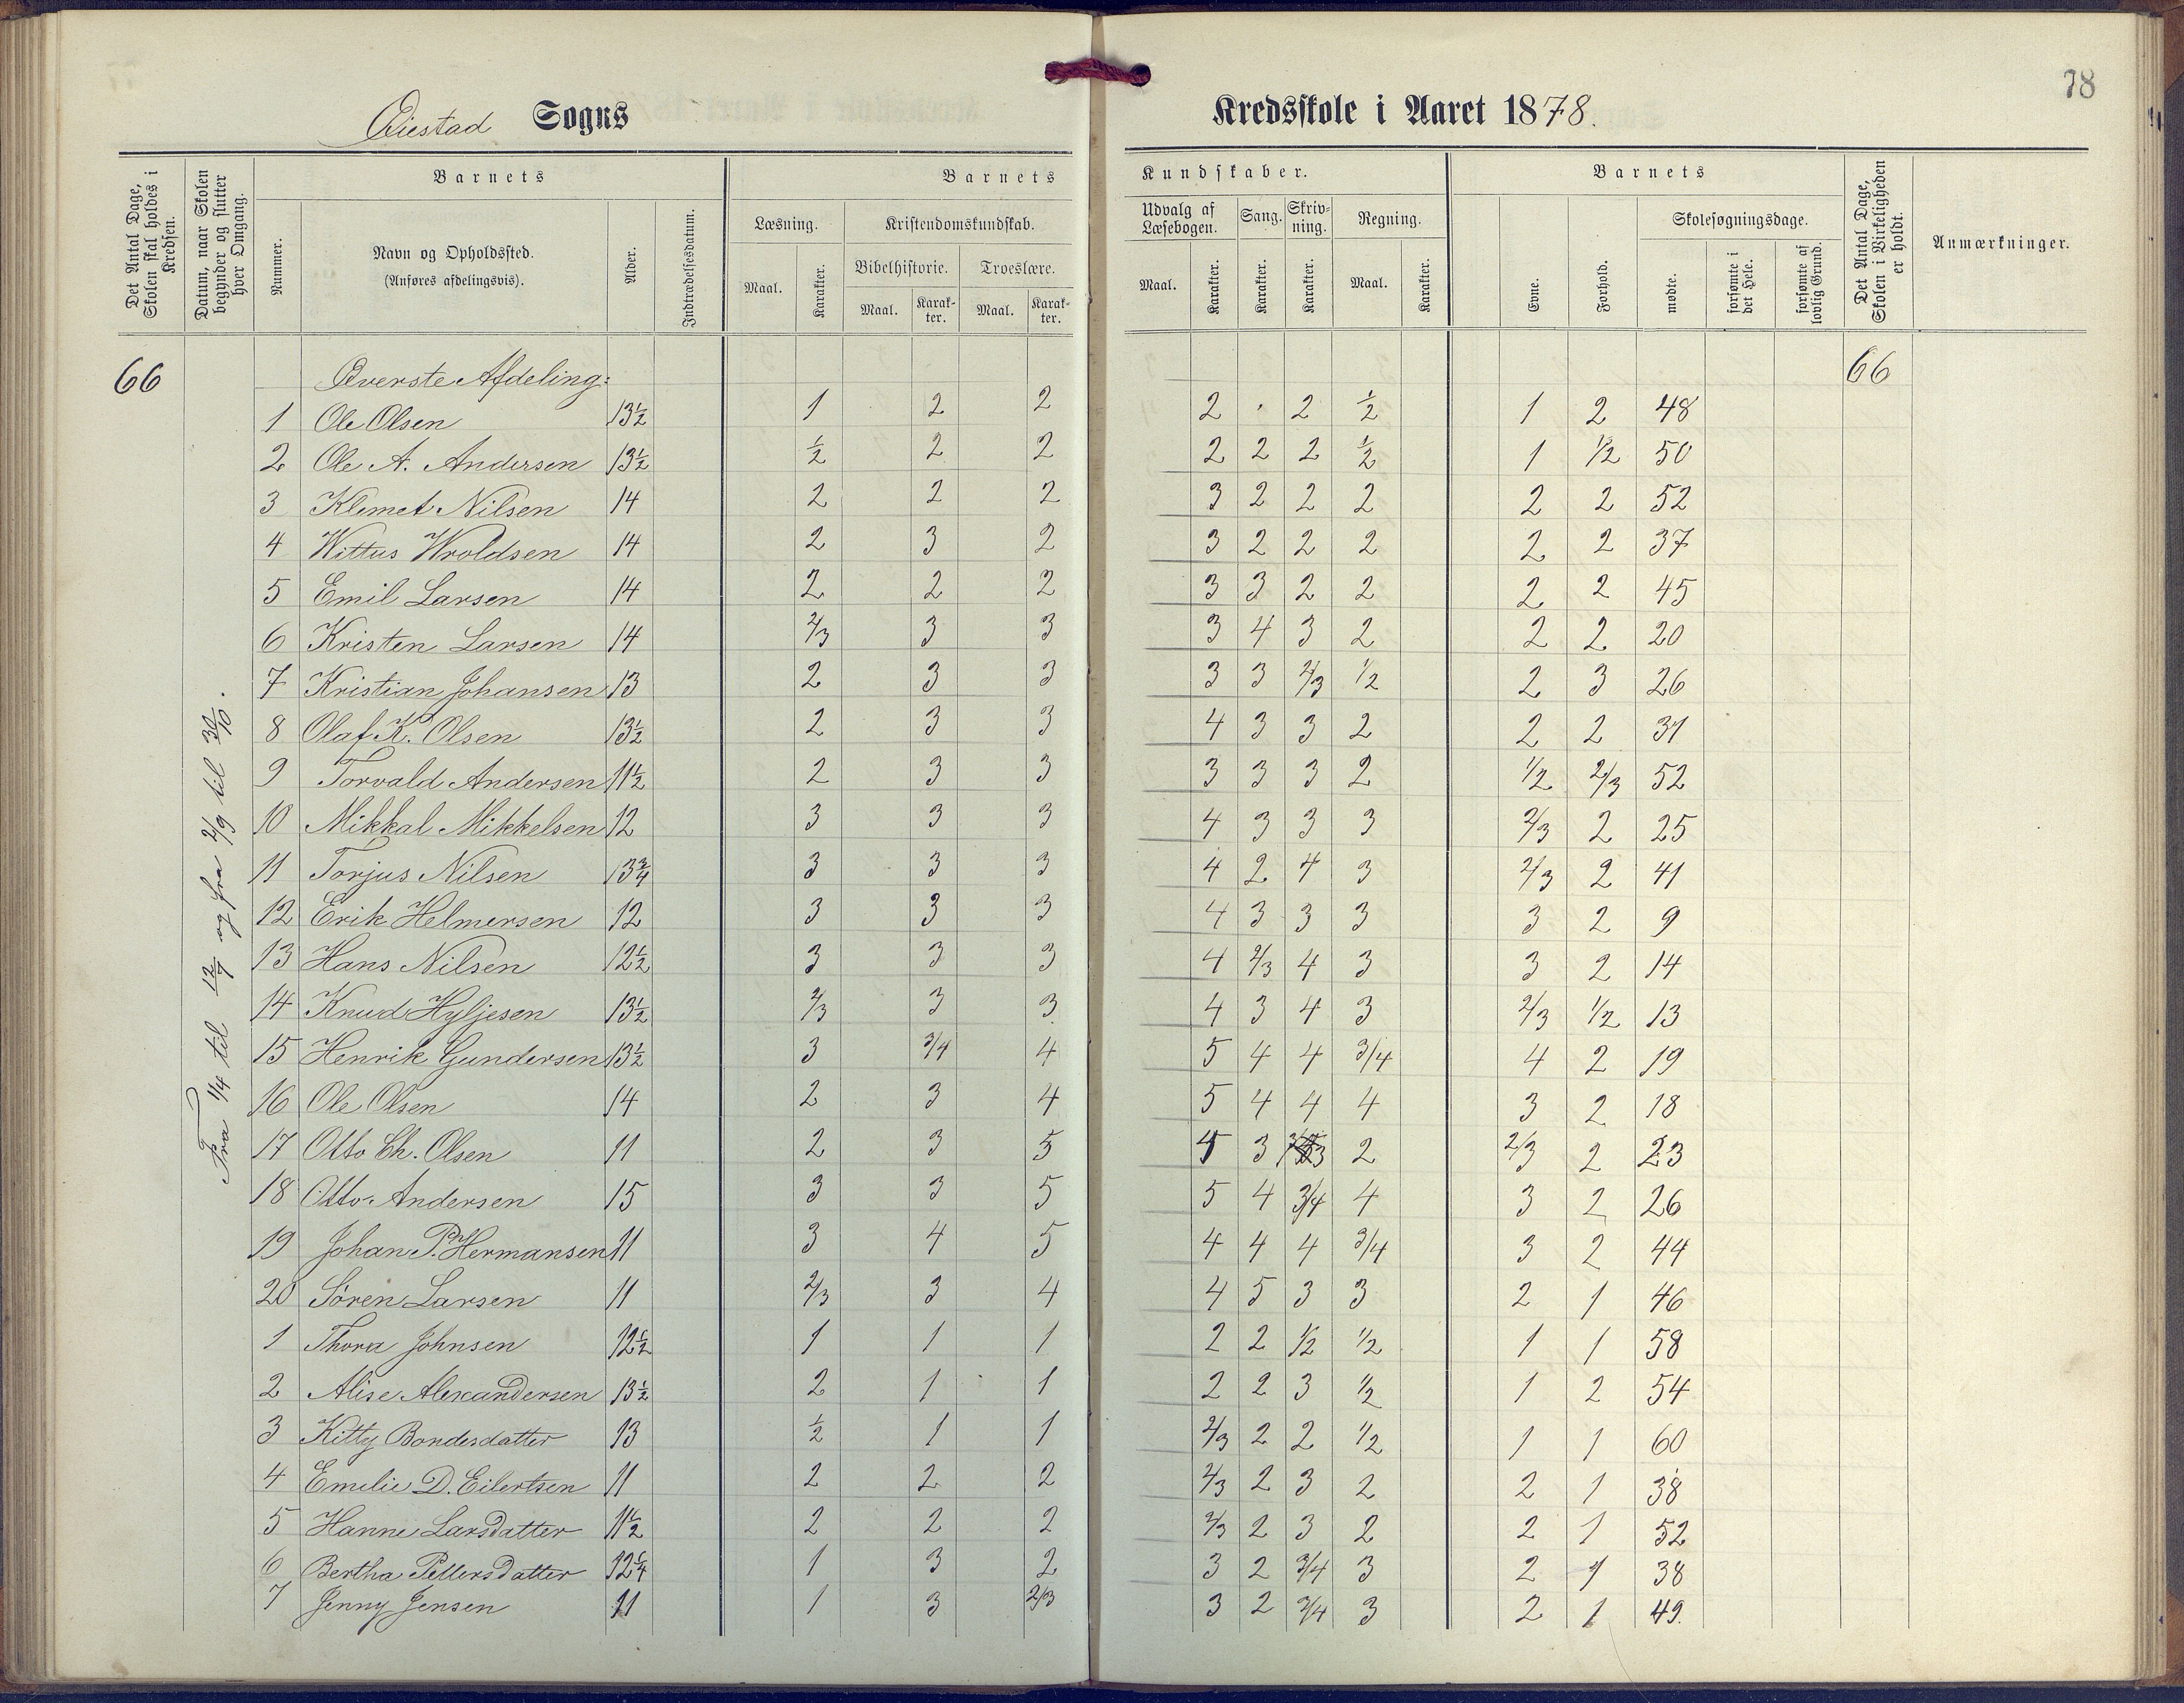 78
Øiestad Sogns Kredsskole i Aaret 1878.
Det Antal Dage, Skolen skal holdes i Kredsen.
Datum, naar Skolen begynder og slutter hver Omgang.
Barnets
Nummer.
Navn og Opholdssted.
(Anføres afdelingsvis).
Alder.
Indtrædelsesdatum.
Barnets Kundskaber.
Læsning.
Maal. Karakter.
Kristendomskundskab.
Bibelhistorie. Troeslære.
Maal. Karakter. Maal. Karakter.
Udvalg af Læsebogen.
Maal. Karakter.
Sang.
Karakter.
Skrivning.
Karakter.
Regning.
Maal. Karakter.
Barnets
Evne. Forhold.
Skolesøgningsdage.
mødte. forsømte i det Hele. forsømte af lovlig Grund.
Det Antal Dage, Skolen i Virkeligheden er holdt.
Anmærkninger.
66 Øverste Afdeling: 66
Fra 1/4 til 12/7 og fra 2/9 til 30/10.
1 Ole Olsen 13½ 1 2 2 2 · 2 ½ 1 2 48
2 Ole A. Andersen 13½ ½ 2 2 2 2 2 ½ 1 1/2 50
3 Klemet Nilsen 14 2 2 2 3 2 2 2 2 2 52
4 Wittus Wroldsen 14 2 3 2 3 2 2 2 2 2 37
5 Emil Larsen 14 2 2 2 3 3 2 2 2 2 45
6 Kristen Larsen 14 2/3 3 3 3 4 3 2 2 2 20
7 Kristian Johansen 13 2 3 3 3 3 2/3 1/2 2 3 26
8 Olaf K. Olsen 13½ 2 3 3 4 3 3 2 2 2 31
9 Torvald Andersen 11½ 2 3 3 3 3 3 2 1/2 2/3 52
10 Mikkal Mikkelsen 12 3 3 3 4 3 3 3 2/3 2 25
11 Torjus Nilsen 13¾ 3 3 3 4 2 4 3 2/3 2 41
12 Erik Helmersen 12 3 3 3 4 3 3 3 3 2 9
13 Hans Nilsen 12½ 3 3 3 4 2/3 4 3 3 2 14
14 Knud Hyljesen 13½ 2/3 3 3 4 3 4 3 2/3 1/2 13
15 Henrik Gundersen 13½ 3 3/4 4 5 4 4 3/4 4 2 19
16 Ole Olsen 14 2 3 4 5 4 4 4 3 2 18
17 Otto Ch. Olsen 11 2 3 5 3 3 2 2/3 2 23
18 Otto Andersen 15 3 3 5 5 4 3/4 4 3 2 26
19 Johan P. Hermansen 11 3 4 5 4 4 4 3/4 3 2 44
20 Sören Larsen 11 2/3 3 4 4 5 3 3 2 1 46
1 Thora Johnsen 12½ 1 1 1 2 2 1/2 1/2 1 1 58
2 Alise Alexandersen 13½ 2 1 1 2 2 3 1/2 1 2 54
3 Kitty Bondesdatter 13 ½ 1 1 2/3 2 2 1/2 1 1 60
4 Emelie D. Eilertsen 11 2 2 2 2/3 2 3 2 2 1 38
5 Hanne Larsdatter 11½ 2 2 2 2/3 2 3 2 2 1 52
6 Bertha Pettersdatter 12¼ 1 3 2 3 2 3/4 3 2 1 38
7 Jenny Jensen 11 1 3 2/3 3 2 3/4 3 2 1 49.